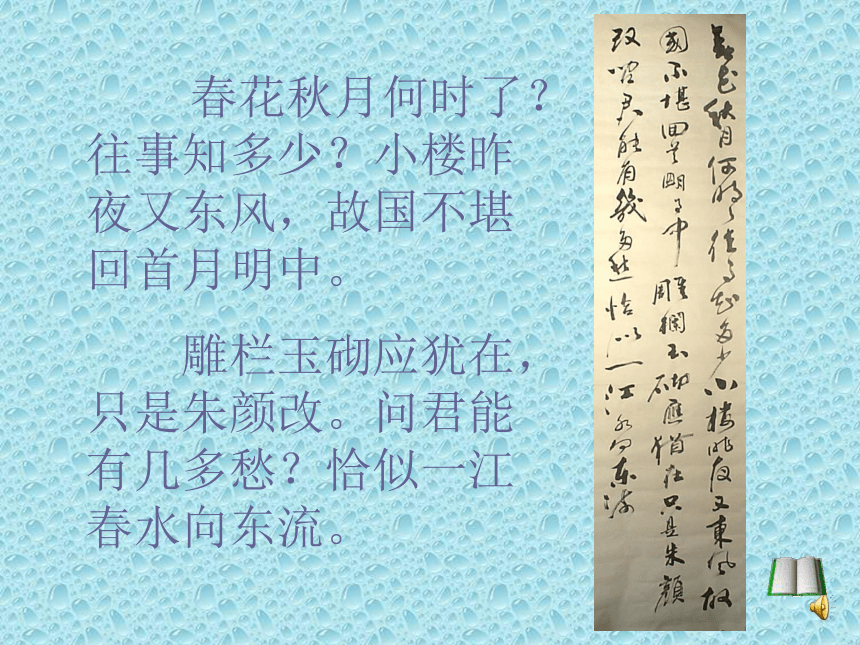 春花秋月何时了？
往事知多少？小楼昨
夜又东风，故国不堪
回首月明中。
雕栏玉砌应犹在，
只是朱颜改。问君能
有几多愁？恰似一江
春水向东流。
春花秋月何時了往事知多少小樓昨夜又東風故
國不堪回首月明中雕欄玉砌應猶在只是朱顏
改問君能有幾多愁恰似一江水向東流